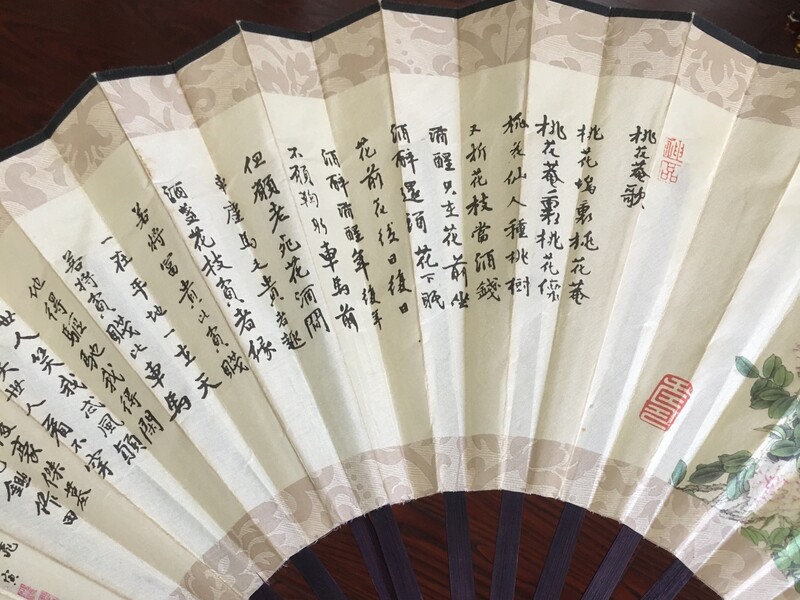 桃花菴歌
桃花塢裏桃花菴
桃花菴裏桃花僊
桃花仙人種桃樹
又折花枝當酒錢
酒醒只在花前坐
酒醉還酒花下眠
花前花後日復日
酒醉酒醒年復年
不願鞠躬車馬前
但願老死花酒間
車塵馬足貴者趣
酒盞花枝貧者緣
若將富貴比貧賤
一在平地一在天
若將貧賤比車馬
他得驅馳我得閒
世人笑我忒風顛
笑世人看不穿
豪傑墓
鋤作田
寅